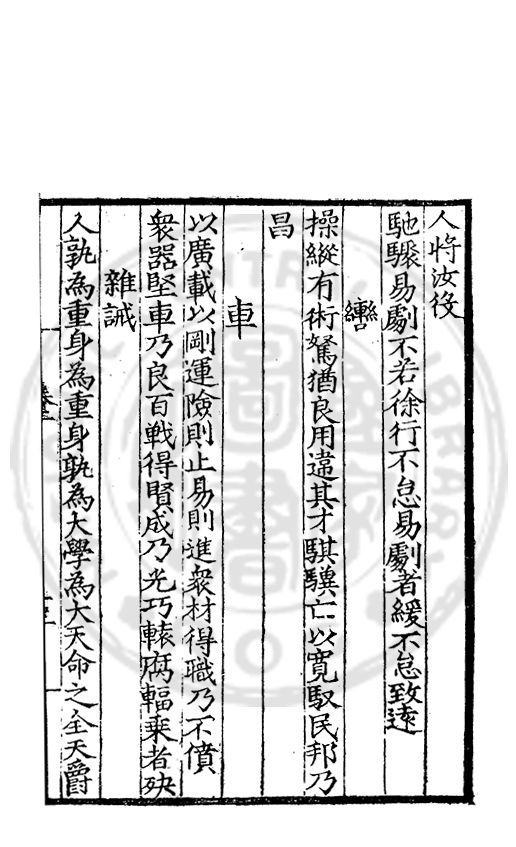 人將汝役
馳驟易劇不若徐行不怠易劇者緩不怠致遠
轡
操縱有術駑猶良用違其才騏驥亡以寬馭民邦乃
昌
車
以廣載以剛運險則止易則進衆材得職乃不僨
衆器堅車乃良百戰得賢成乃光巧轅腐輻乘者殃
雜誡
人孰為重身為重身孰為大學為大天命之全天爵